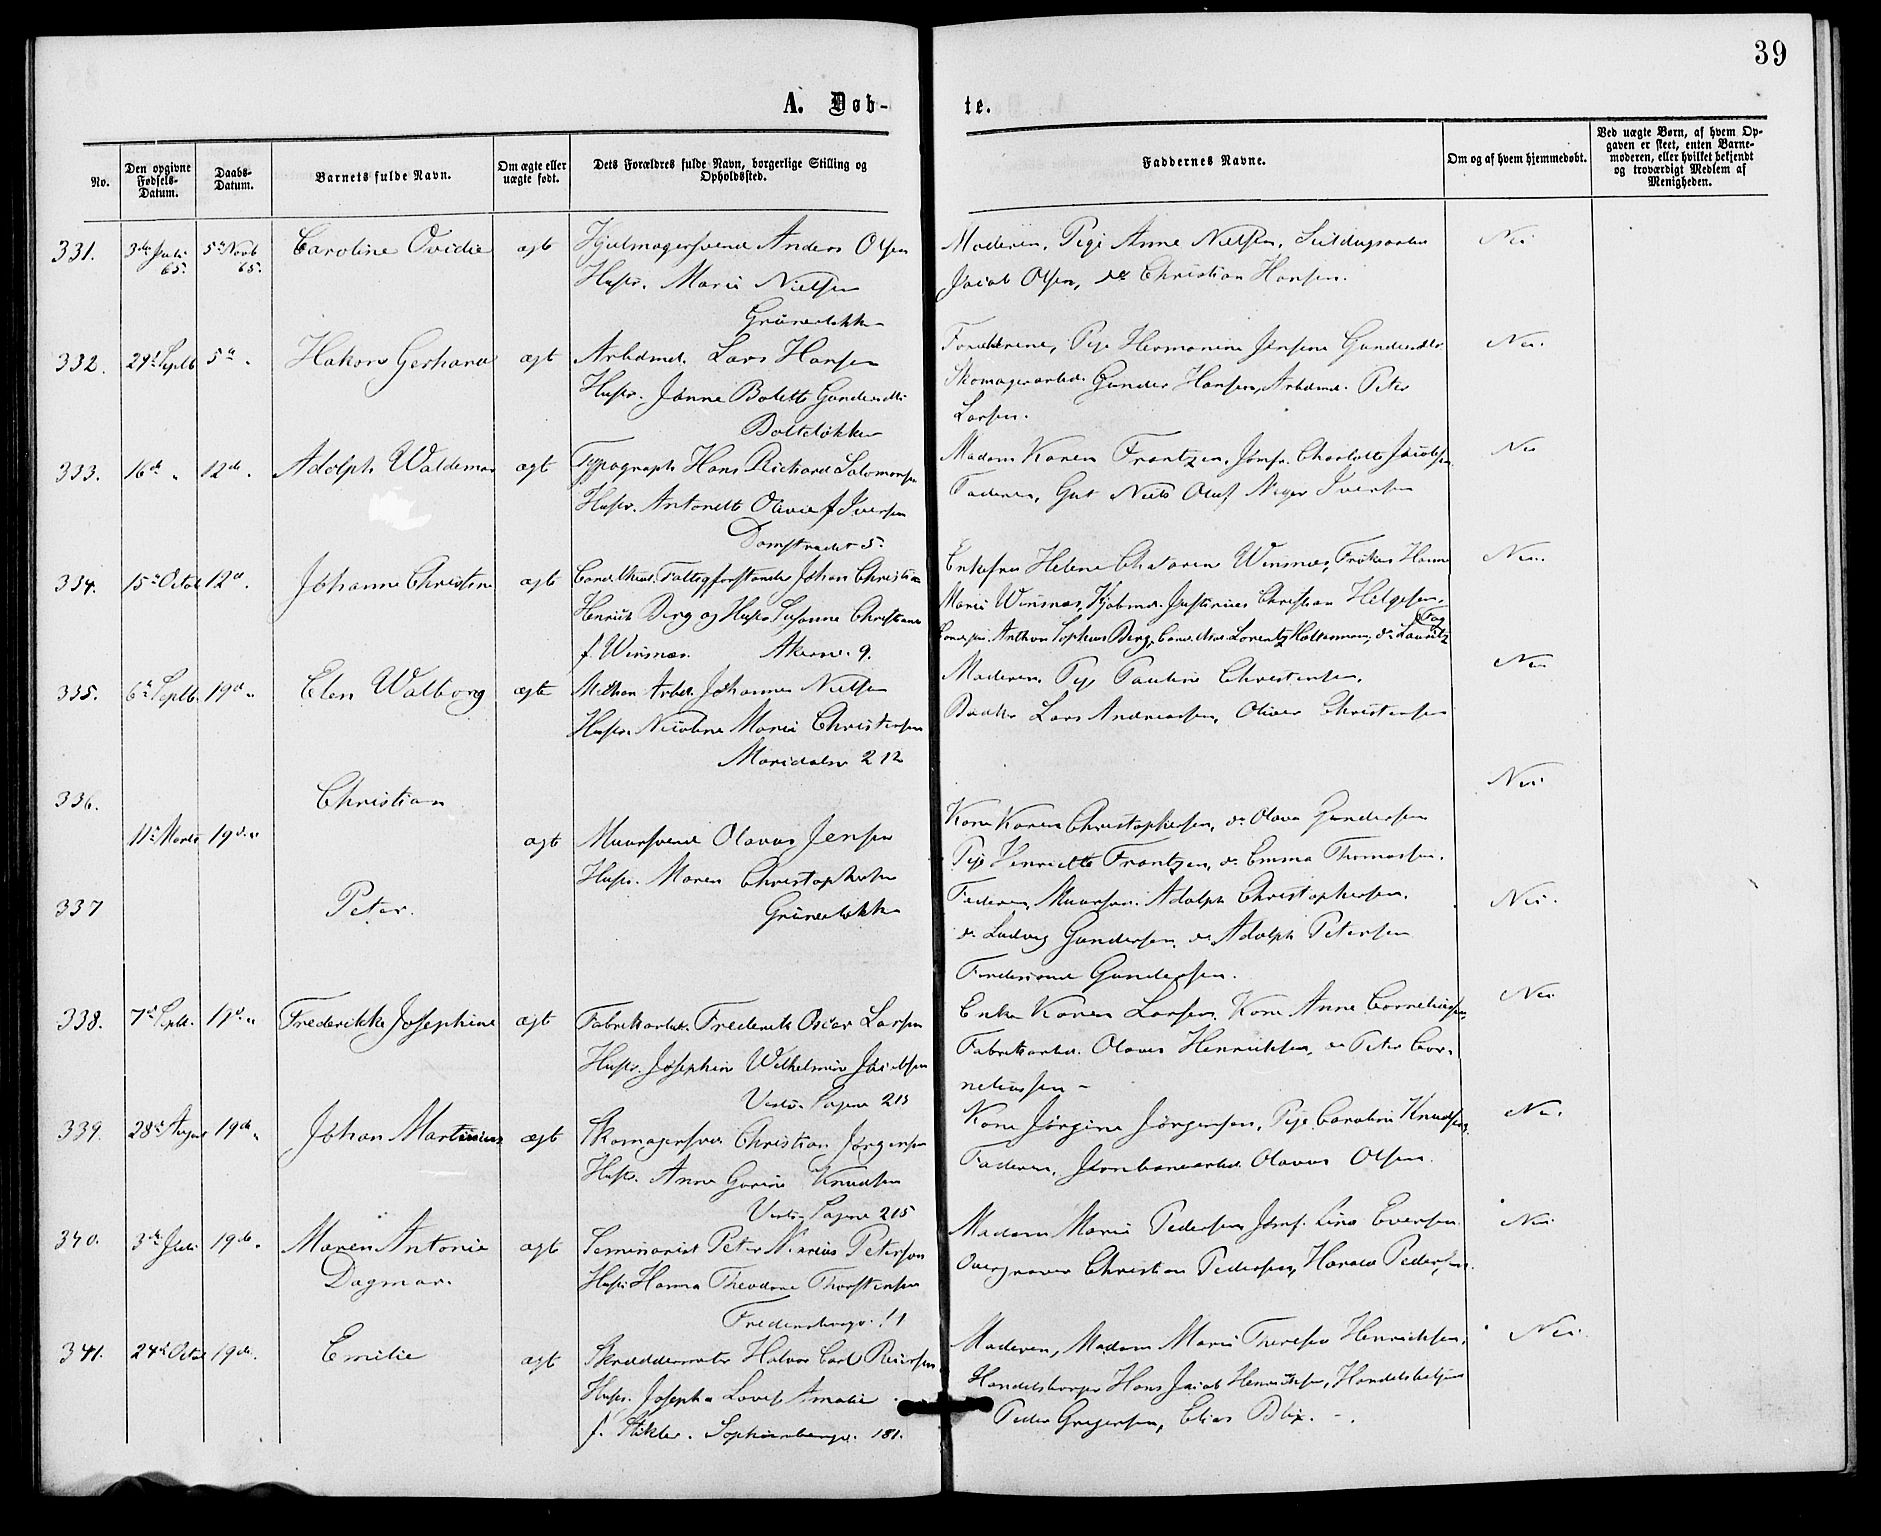 39
A. Døb-
te.
No.
Den opgivne Fødsels-Datum.
Daabs-Datum.
Barnets fulde Navn.
Om ægte eller uægte født.
Dets Forældres fulde Navn, borgerlige Stilling og Opholdssted.
Faddernes Navne.
Om og af hvem hjemmedøbt.
Ved uægte Børn, af hvem Opgaven er skeet, enten Barnemoderen, eller hvilket bekjendt og troværdigt Medlem af Menigheden.
331. 3de Juli 65. 5te Novb 65. Caroline Ovidie ægt Hjulmagersvend Anders Olsen
Hustr. Marie Nielsen
Grünerløkken
Moderen, Pige Anne Nielsen, Jacob Olsen, do Christian Hansen. Nei
332. 29de Septb 5te " Hakon Gerhard ægt Arbdmd. Lars Hansen
Hustr. Jonne Bolette Gundersdtr
Bolteløkken
Forældrene, Pige Hermanine Jensine Gundersdtr
Skomagerarbd. Gunder Hansen, Arbdmd. Peter
Larsen. Nei.
333. 16de " 12te " Adolph Waldemar ægt Typograph Hans Richard Salomonsen
Hustr. Antonette Olivie f Iversen
5.
Madam Karen Frantzen, Jomfr. Charlotte Jacobsen
Faderen, Gut Niels Oluf Iversen Nei
334. 15de Octob 12te " Johanne Christine ægt Cand. theol. Fattigforstander Johan Christian
Henrich Berg og Hustr. Susanne Christiane
f. Winsnes. Akersv. 9.
Enkefru Helene Winsnes, Frøken Hanne
Marie Winsnes, Kjøbmd. Justinius Christian Helgesen,
Anthon Sophus Berg, Cand. Lorentz Holtermann, do Lauritz Nei.
335. 6te Septb. 19de " Elen Walborg ægte Mekan. Arbd. Johannes Nielsen
Hustr. Nicoline Marie Christensen
Maridalsv 212
Moderen, Pige Pauline Christensen,
Lars Andreassen, Oliver Christensen Nei
336. Christian Nei
11te Marts 19de " ægt Muursvend Olavus Jensen
Hustr. Maren Christophersen
Grünerløkken
Kone Karen Christophersen, do Olava Gundersen
Pige Henriette Frantzen, do Emma Thomassen.
337 Peter. Faderen, Muursv. Adolph Christophersen. Nei.
do Ludvig Gundersen, do Adolph Petersen
Ferdinand Gundersen.
338. 7de Septb. 19de " Frederikke Josephine ægt Fabrikarbd. Frederik Oscar Larsen
Hustr. Josephine Wilhelmine Jacobsen
Vestre Sagene 215
Enke Karen Larsen, Kone Anne Corneliussen,
Fabrikarbd. Olaves Henriksen, do Peter Cor-
neliussen - Nei
339. 28de August 19de " Johan Martinius ægt Skomagersvd. Christian Jørgensen
Hustr. Anne Gurine Knudsen
Vestre Sagene 215
Kone Jørgine Jørgensen, Pige Caroline Knudsen,
Faderen, Jernbanearbd. Olavus Olsen. Nei.
340. 3de Juli 19de " Maren Antonie ægt Seminarist Peter Petersen
Dagmar. Hustr. Hanna Theodora Thorstensen
11
Madam Marie Pedersen, Jomf. Lina Eversen.
Christian Pedersen, Harald Pedersen. Nei
341. 24de Octob 19de. Emilie ægt Skræddermester Halvor Carl Reiersen
Hustr. Josepha Lovise Amalie
f. Stikler. Sophienbergv. 181.
Moderen, Madam Marie Therese Henriksen,
Handelsborger Hans Jacob Henriksen, Handelsbetjent
Peder Gregersen, Elias Blix. Nei.